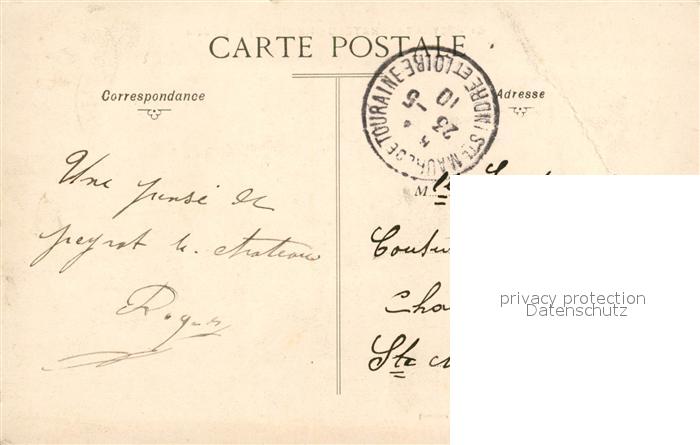 CARTE POSTALE
Correspondance
Adresse
STE MAURE DE TOURAINE INDRE ET LOIRE
23 -5
10
M
Une pensé de
peyrat le chateau
Roger
Coutu
Cha
Ste M
privacy protection
Datenschutz